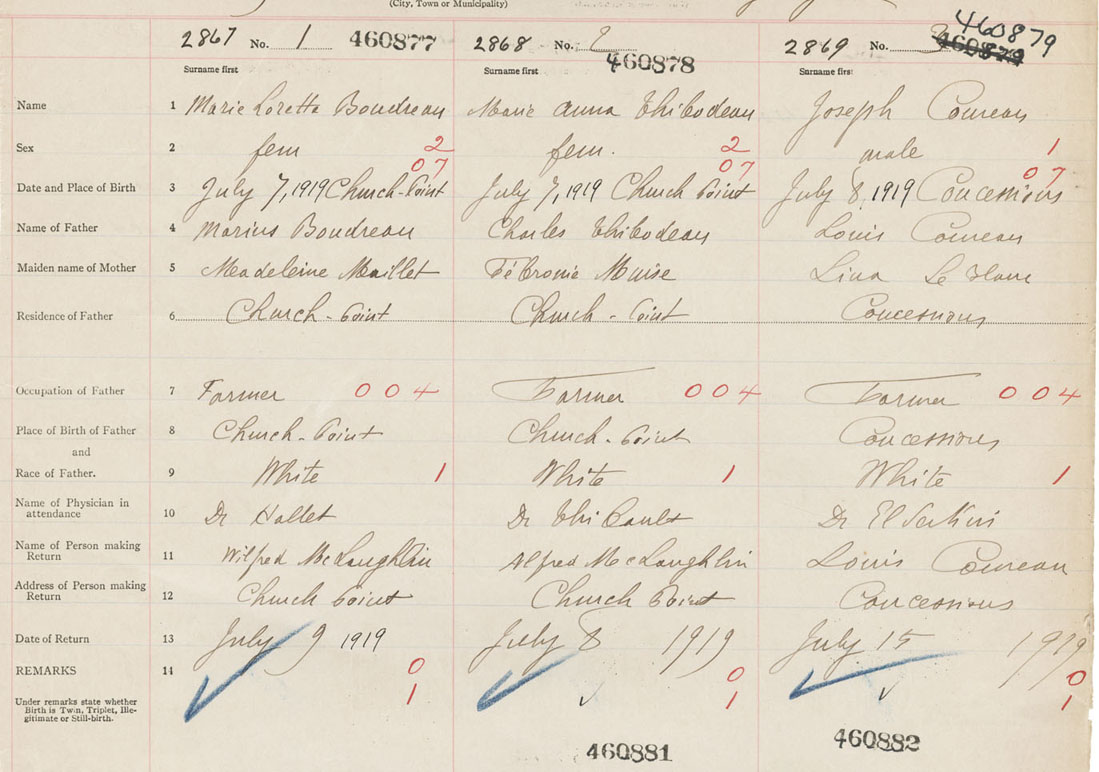 (City, Town or Municipality)
2867 No. 1 460877 2868 No. 2 460878 2869 No. 3 460879
Surname first Surname first Surname first
Name 1 Marie Loretta Boudreau Marie Anna Thibodeau Joseph Comeau
Sex 2 fem 2 fem. 2 male 1
07 07 07
Date and Place of Birth 3 July 7, 1919 Church-Point July 7, 1919 Church Point July 8, 1919 Concessions
Name of Father 4 Marius Boudreau Charles Thibodeau Louis Comeau
Maiden name of Mother 5 Madeleine Maillet Fébronie Muise Lina Le Blanc
Residence of Father 6 Church-Point Church-Point Concessions
Occupation of Father 7 Farmer 004 Farmer 004 Farmer 004
Place of Birth of Father 8 Church-Point Church-Point Concessions
and
Race of Father. 9 White 1 White 1 White 1
Name of Physician in
attendance 10 Dr Hallet Dr Thibault Dr
Name of Person making
Return 11 Wilfred McLaughlin Alfred McLaughlin Louis Comeau
Address of Person making
Return 12 Church Point Church Point Concessions
Date of Return 13 July 9 1919 July 8 1919 July 15 1919
REMARKS 14 0 0 0
Under remarks state whether
Birth is Twin, Triplet, Ille-
gitimate or Still-birth.
1 1 1
460881 460882